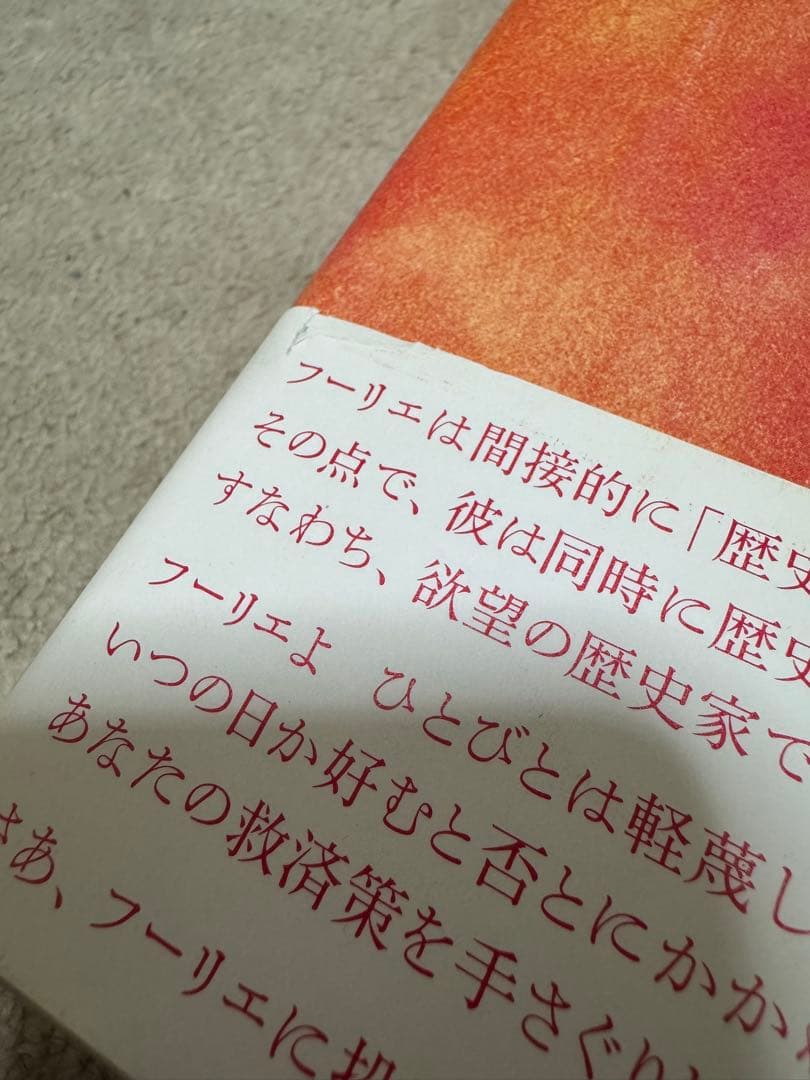 フーリエは間接的に「歴史
その点で、彼は同時に歴史
すなわち、欲望の歴史家で
フーリエよ　ひとびとは軽蔑し
いつの日か好むと否とにかか
あなたの救済策を手さぐり
さあ、フーリエに投